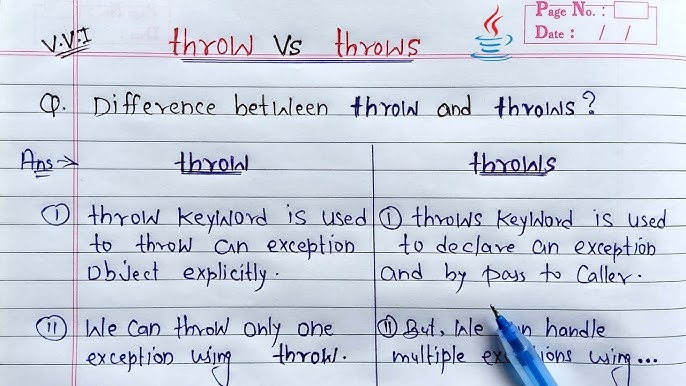 V.V.I
throw Vs throws
Page No. :
Date : / /
Q. Difference between throw and throws?
Ans→
throw
(i) throw keyword is used
to throw an exception
object explicitly.
(ii) We can throw only one
exception using throw.
throws
(i) throws keyword is used
to declare an exception
and by pass to caller.
(ii) But, we handle
multiple using...